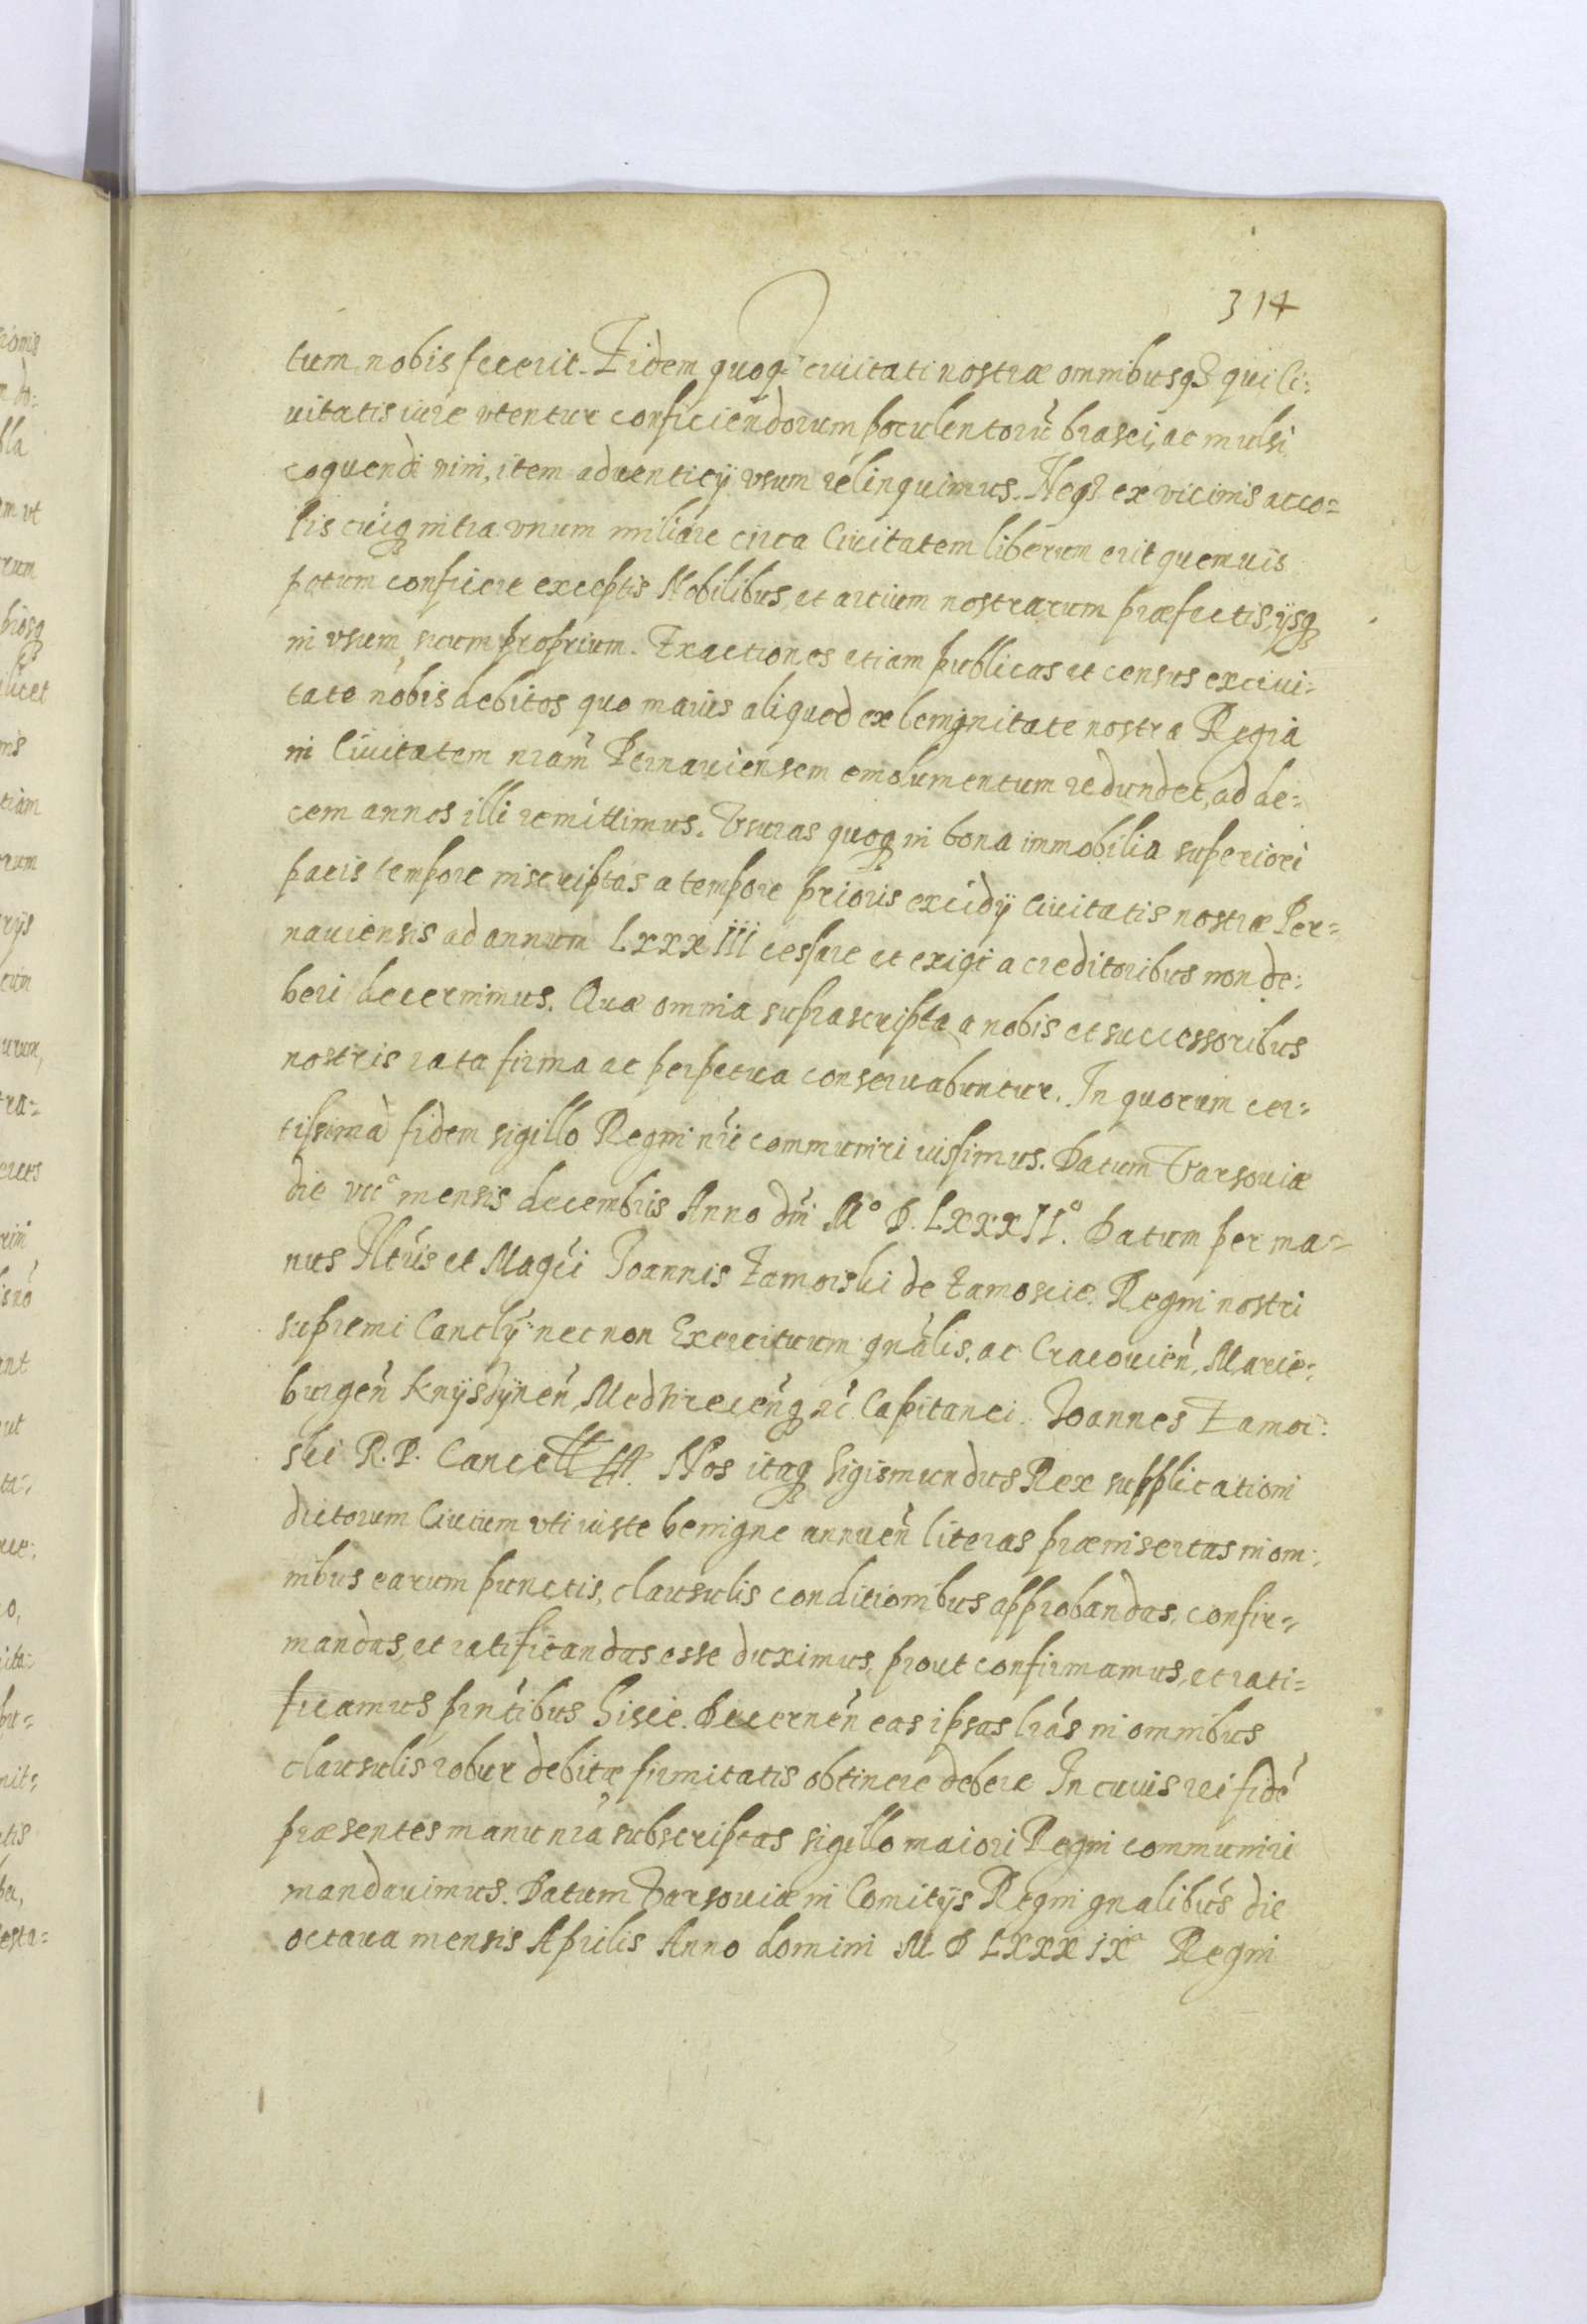 314
tum nobis fecerit. Eidem quoq3 civitati nostræ omnibusq3 qui Ci=
uitatis iure vtentur conficiendorum poculentorũ brasei, ac mulsi
coquendi vini, item aduenticÿ vsum relinquimus. Neq3 ex vicinis acco=
lis cuiq3 intra vnum miliare circa Ciuitatem liberum erit quemuis
potum conficere exceptis Nobilibus, et arcium nostrarum præfectis, ÿsq3
in vsum suum proprium. Exactiones etiam publicas et census ex ciui=
tate nobis debitos quo maius aliquod ex benignitate nostra Regia
in Ciuitatem nrám Pernauiensem emolumentum redundet, ad de=
cem annos illi remittimus. Vsuras quoq3 in bona immobilia superiori
pacis tempore inscriptas a tempore prioris excidÿ Ciuitatis nostræ Per=
nauiensis ad annum LXXXIII cessare et exigi a creditoribus non de=
beri decernimus. Quæ omnia suprascripta a nobis et successoribus
nostris rata firma ac perpetua conseruabuntur. In quorum cer=
tissimã fidem sigillo Regni nrí communiri iussimus. Datum Varsouiæ
die VIIa mensis decembris Anno dni Mo D. LXXXIIo. Datum per ma=
nus Illris et Magci Joannis Zamoiski de Zamoscie Regni nostri
supremi Cancÿ nec non Exercituum gnális, ac Cracouień, Marie=
burgeń Knÿsÿneń, Medhireceńq3 rć Capitanei. Joannes Zamoi=
ski R. P. Cancell. Nos itaq3 Sigismundus Rex supplicationi
dictorum Ciuium vti iuste benigne annueń literas præinsertas in om=
nibus earum punctis, clausulis conditionibus approbandas, confir=
mandas, et ratificandas esse duximus, prout confirmamus, et rati=
ficamus pnrtibus hisce. Decerneń eas ipsas lrás in omnibus
clausulis robur debitæ firmitatis obtinere debere In cuius rei fidẽ
præsentes manu nrá subscriptas sigillo maiori Regni communiri
mandauimus. Datum Varsouiæ in Comitÿs Regni gnalibús die
octaua mensis Aprilis Anno domini M D LXXXIXo Regni